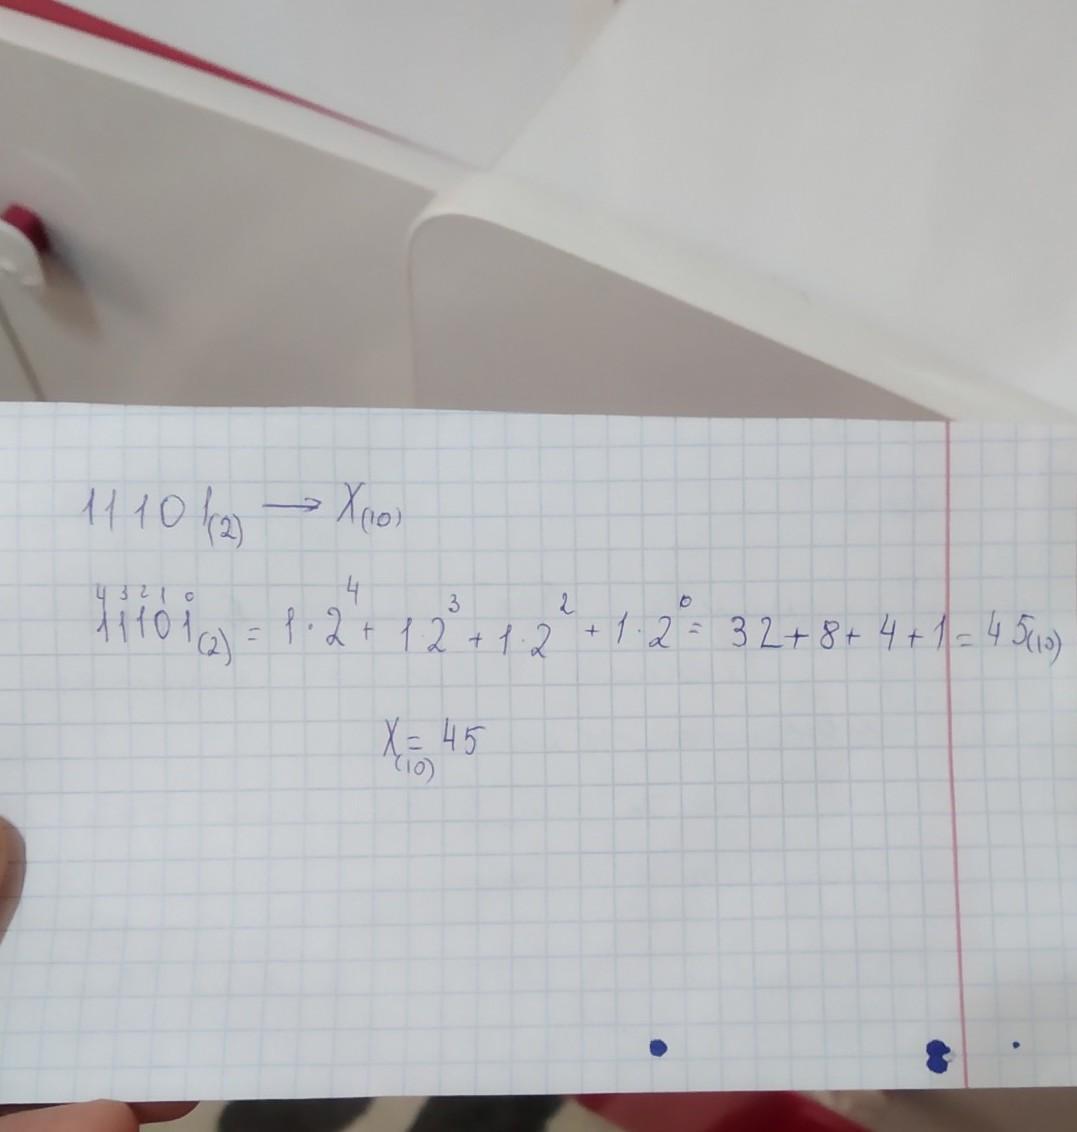 11101(2) → X(10)
4 3 2 1 0
11101(2) = 1·2⁴ + 1·2³ + 1·2² + 1·2⁰ = 32 + 8 + 4 + 1 = 45(10)
X(10) = 45